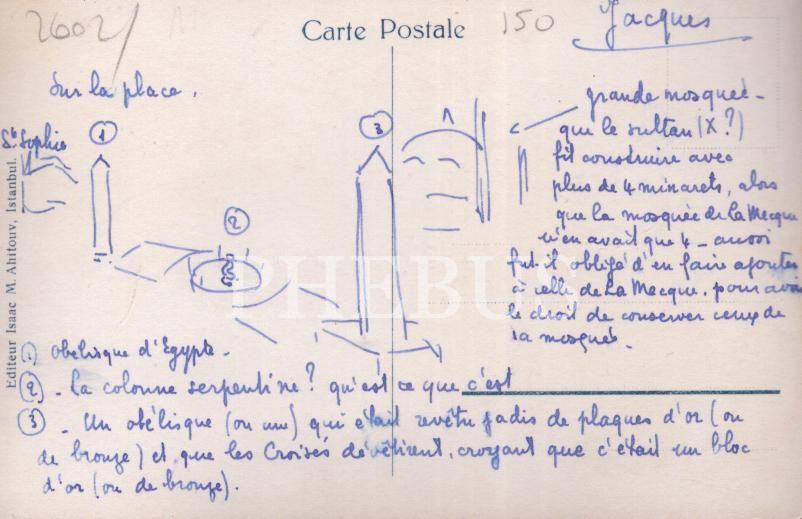 2602/
Carte Postale
150
Jacques
Sur la place.
Ste Sophie
1
2
3
grande mosquée -
que le sultan (X?)
fit construire avec
plus de 4 minarets, alors
que la mosquée de La Mecque
n'en avait que 4 - aussi
fut-il obligé d'en faire ajouter
à celle de La Mecque, pour avoir
le droit de conserver ceux de
sa mosquée.
PHEBUS
Editeur Isaac M. Ahitouv, Istanbul.
1) obélisque d'Egypte -
2 - La colonne serpentine? qu'est ce que c'est
3 - Un obélisque (ou une) qui était revêtu jadis de plaques d'or (ou
de bronze) et que les Croisés dévêtirent, croyant que c'était un bloc
d'or (ou de bronze).